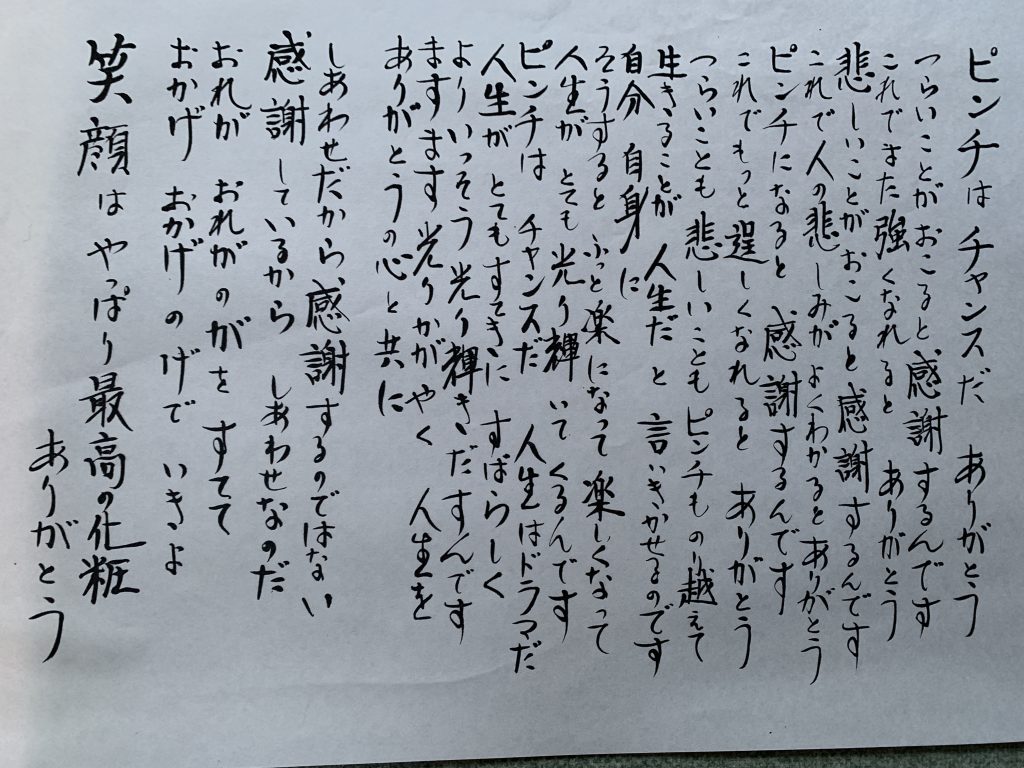 ピンチは チャンスだ ありがとう
つらいことがおこると感謝するんです
これでまた強くなれると ありがとう
悲しいことがおこると感謝するんです
これで人の悲しみがよくわかるとありがとう
ピンチになると 感謝するんです
これでもっと逞しくなれると ありがとう
つらいことも 悲しいこともピンチものり越えて
生きることが 人生だ と 言いきかせるのです
自分 自身に
そうすると ふっと楽になって楽しくなって
人生が とても 光り輝いてくるんです
ピンチは チャンスだ 人生はドラマだ
人生が とてもすてきに すばらしく
よりいっそう光り輝きだすんです
ますます光りかがやく 人生を
ありがとうの心と共に
しあわせだから、感謝するのではない
感謝しているから しあわせなのだ
おれが おれがのがを すてて
おかげ おかげのげで いきよ
笑顔は やっぱり最高の化粧
ありがとう